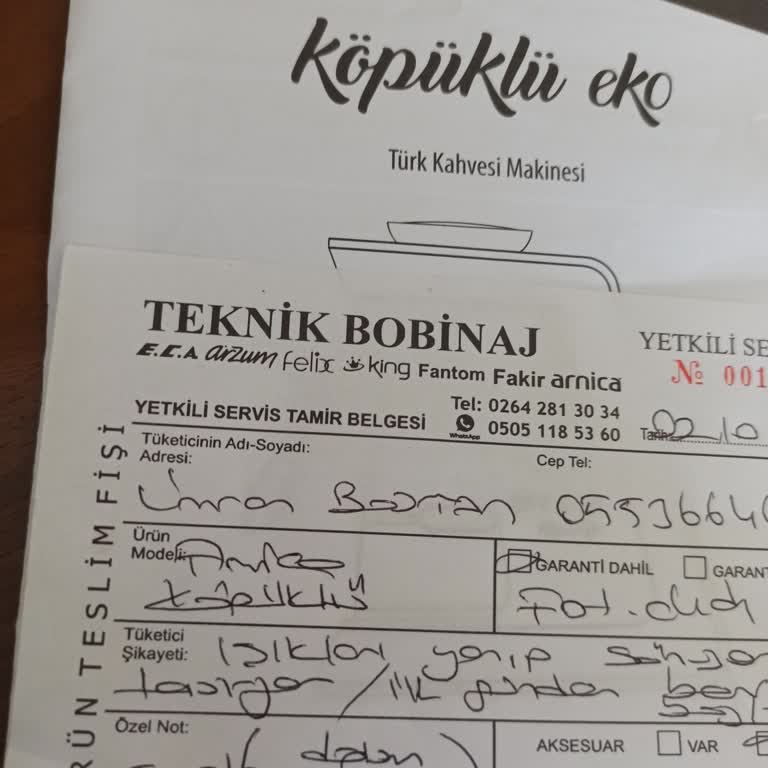 köpüklü eko
Türk Kahvesi Makinesi
TEKNİK BOBİNAJ
YETKİLİ SE
E.C.A arzum felix king Fantom Fakir arnica
№ 001
YETKİLİ SERVİS TAMİR BELGESİ
Tel: 0264 281 30 34
WhatsApp 0505 118 53 60
Tarih: 02.10
ÜRÜN TESLİM FİŞİ
Tüketicinin Adı-Soyadı:
Adresi:
Cep Tel:
Ümran 0553664
Ürün
Modeli: Arnica
Köpüklü
GARANTİ DAHİL
GARANT
Fat.
Tüketici
Şikayeti: Işıkları yanıp sönüyor
taşıyor / ilk günden beri
Özel Not:
AKSESUAR
VAR